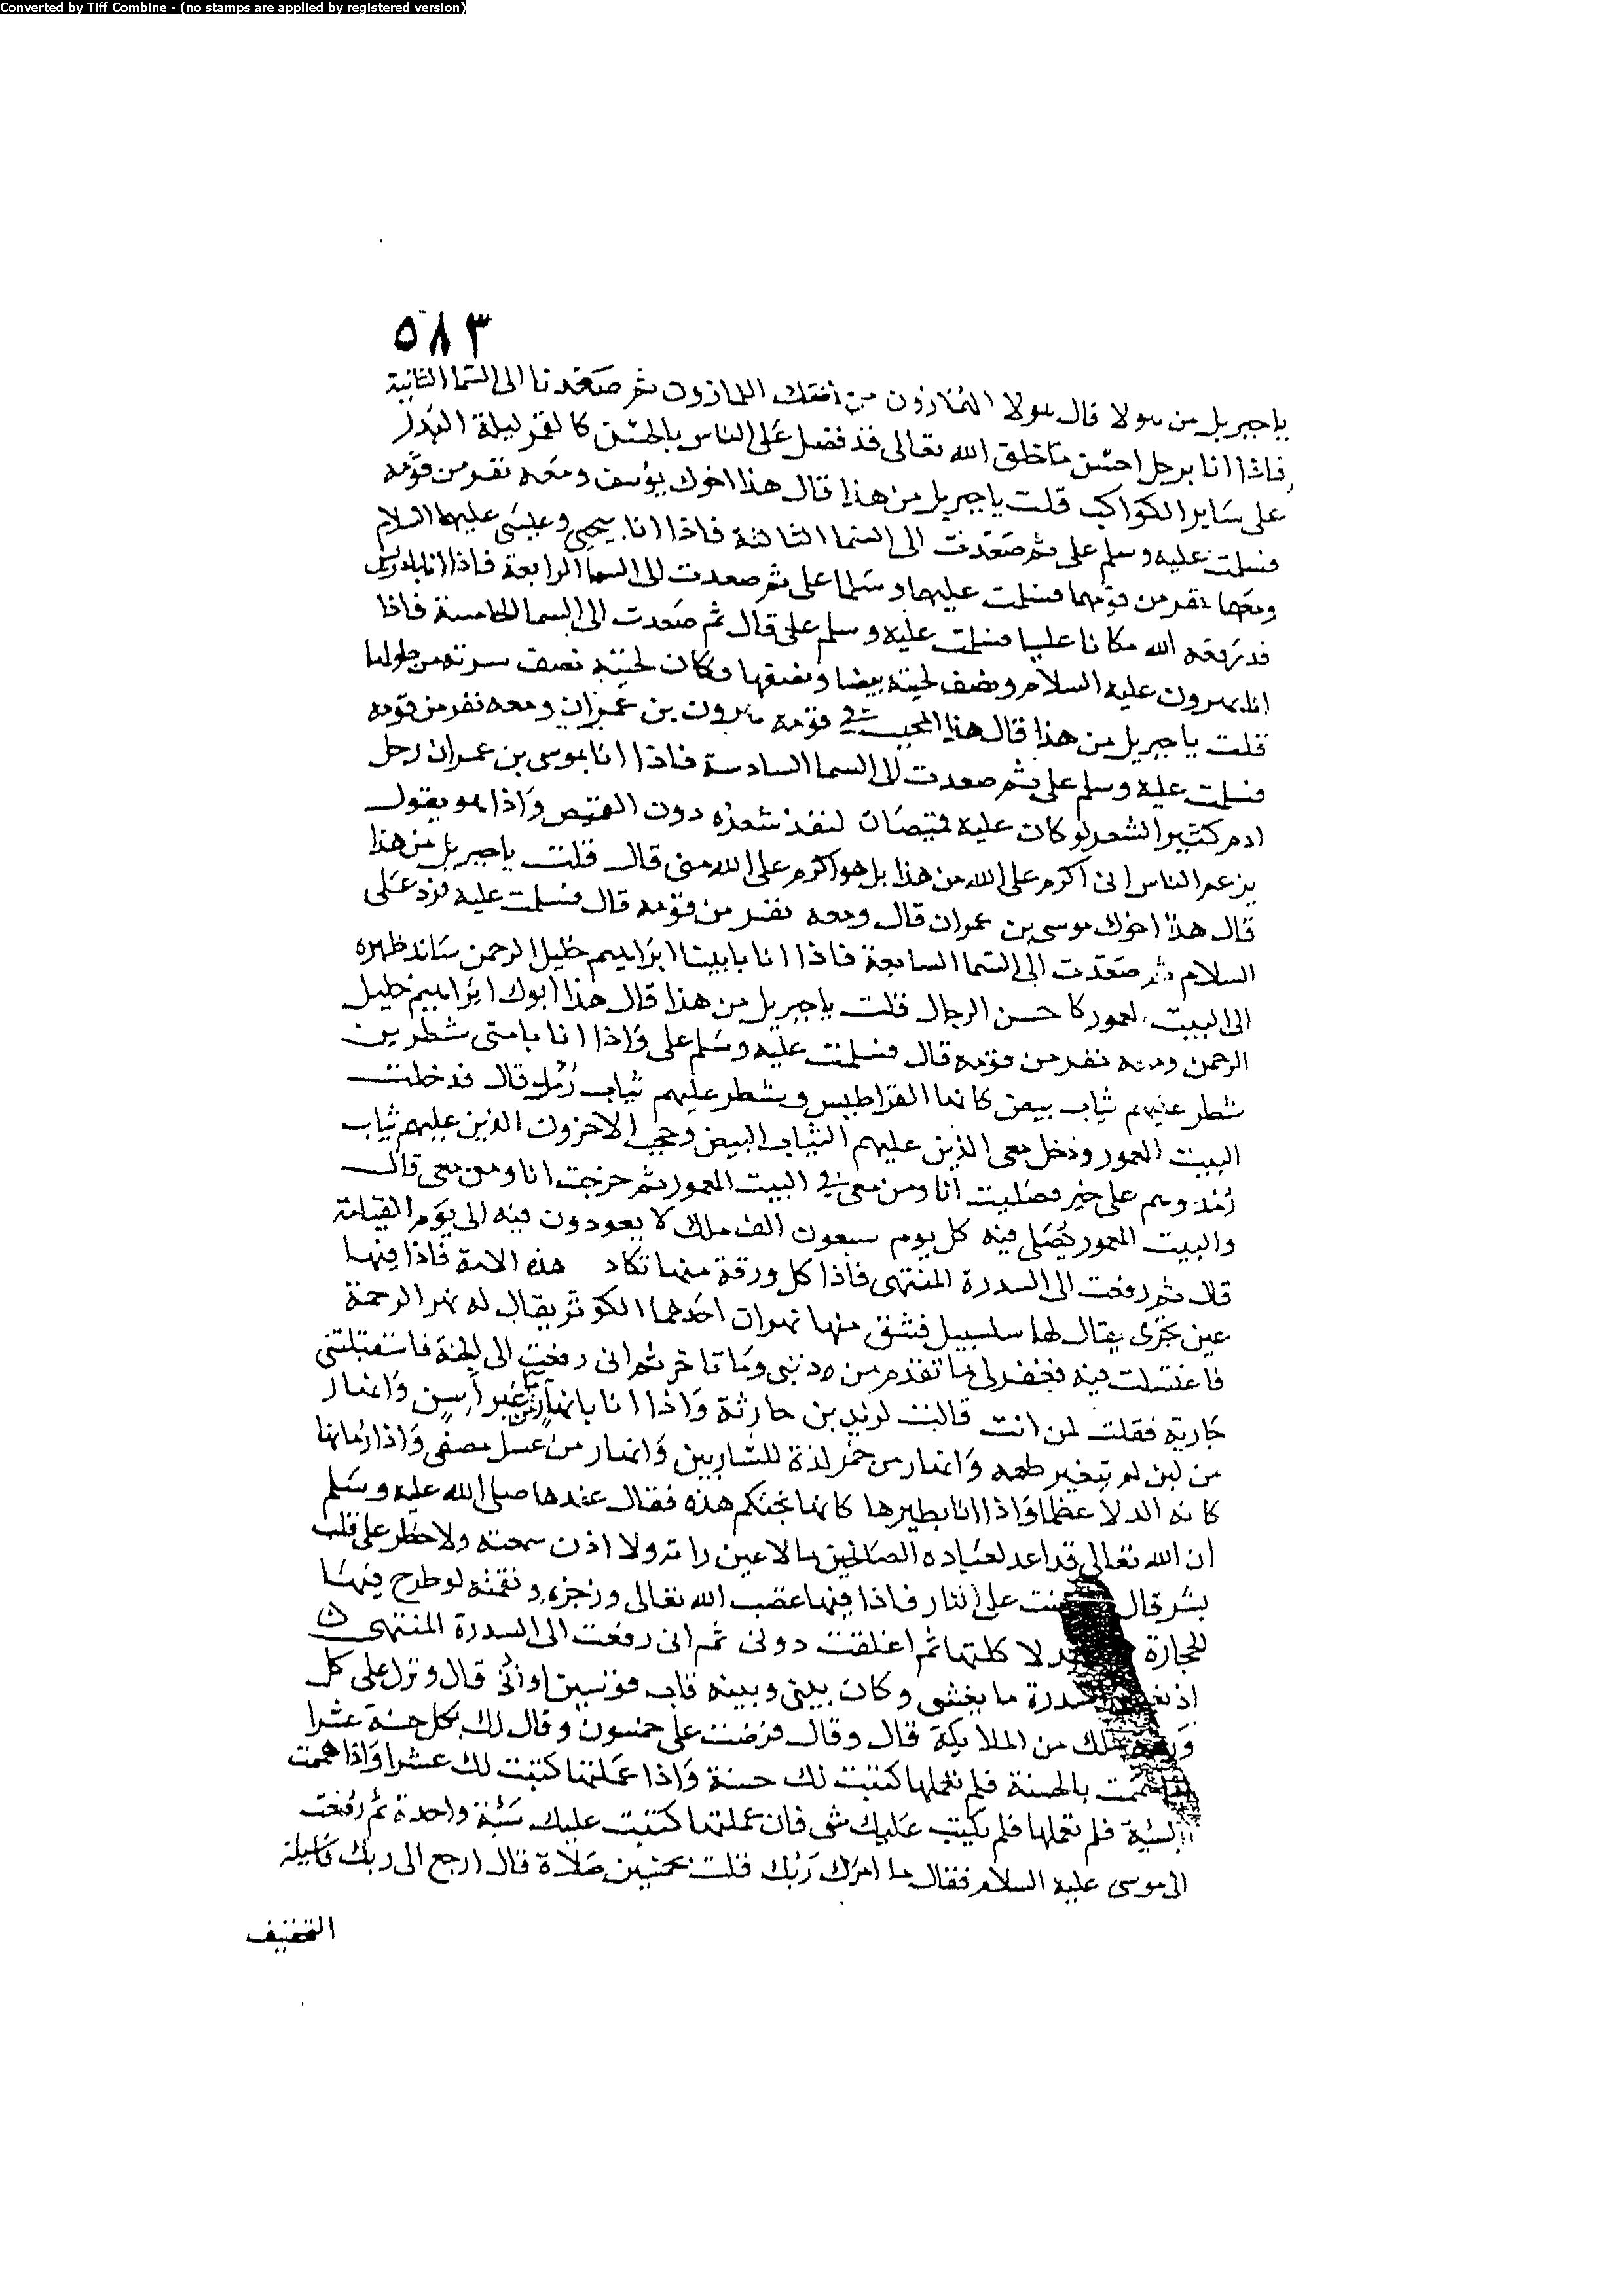 Converted by Tiff Combine - (no stamps are applied by registered version)
٥٨٣
ياجبريل من هولا قال هولا الهمازون من امتك اللمازون ثم صعدنا الى السما الثانية
فاذا انا برجل احسن ما خلق الله تعالى قد فضل على الناس بالحسن كالقمر ليلة البدر
على ساير الكواكب قلت ياجبريل من هذا قال هذا اخوك يوسف ومعه نفر من قومه
فسلمت عليه وسلم على ثم صعدت الى السما الثالثة فاذا انا بيحيى وعيسى عليهما السلام
ومعهما نفر من قومهما فسلمت عليهما وسلما على ثم صعدت الى السما الرابعة فاذا انا بادريس
قد رفعه الله مكانا عليا فسلمت عليه وسلم على قال ثم صعدت الى السما الخامسة فاذا
انا بهرون عليه السلام ونصف لحيته بيضا ونصفها وكان لحيته نصف سرته من طولها
قلت ياجبريل من هذا قال هذا المحبب في قومه هرون بن عمران ومعه نفر من قومه
فسلمت عليه وسلم على ثم صعدت الى السما السادسة فاذا انا بموسى بن عمران رجل
ادم كثير الشعر لو كان عليه قميصان لنفذ شعره دون القميص واذا هو يقول
يزعم الناس انى اكرم على الله من هذا بل هو اكرم على الله منى قال قلت ياجبريل من هذا
قال هذا اخوك موسى بن عمران قال ومعه نفر من قومه قال فسلمت عليه فرد على
السلام ثم صعدت الى السما السابعة فاذا انا بابينا ابراهيم خليل الرحمن ساند ظهره
الى البيت المعمور كاحسن الرجال قلت ياجبريل من هذا قال هذا ابوك ابراهيم خليل
الرحمن ومعه نفر من قومه قال فسلمت عليه وسلم على واذا انا بامتى شطرين
شطر عليهم ثياب بيض كانها القراطيس وشطر عليهم ثياب رُمْد قال فدخلت
البيت المعمور ودخل معى الذين عليهم الثياب البيض وحجب الاخرون الذين عليهم ثياب
رُمد وهم على خير فصليت انا ومن معى في البيت المعمور ثم خرجت انا ومن معى قال
والبيت المعمور يُصَلى فيه كل يوم سبعون الف ملك لا يعودون فيه الى يوم القيامة
قال ثم رفعت الى السدرة المنتهى فاذا كل ورقة منها تكاد هذه الامة فاذا فيها
عين تجرى يقال لها سلسبيل فشق منها نهران احدهما الكوثر يقال له نهر الرحمة
فاغتسلت فيه فغفر لى ما تقدم من ذنبى وما تاخر ثم انى رفعت الى الجنة فاستقبلتنى
جارية فقلت لمن انت قالت لزيد بن حارثة واذا انا بانهار من غير آسن وانهار
من لبن لم يتغير طعمه وانهار من خمر لذة للشاربين وانهار من عسل مصفى واذا رمانها
كانه الدلا عظما واذا انا بطيرها كانها بختكم هذه فقال عندها صلى الله عليه وسلم
ان الله تعالى قد اعد لعباده الصالحين ما لا عين راته ولا اذن سمعته ولا خطر على قلب
بشر قال على النار فاذا فيها غضب الله تعالى وزجره ونقمته لو طرح فيها
الحجارة لا كلتها ثم اغلقت دونى ثم انى رفعت الى السدرة المنتهى
اذ السدرة ما يغشى وكان بينى وبينه قاب قوسين او ادنى قال ونزل على كل
ملك من الملايكة قال وقال فرضت على خمسون وقال لك بكل حسنة عشرا
هممت بالحسنة فلم تعملها كتبت لك حسنة واذا عملتها كتبت لك عشرا واذا هممت
بالسيئة فلم تعملها فلم يكتب عليك شى فان عملتها كتبت عليك سيئة واحدة ثم رفعت
الى موسى عليه السلام فقال ما امرك ربك قلت بخمسين صلاة قال ارجع الى ربك فاسيله
التخفيف